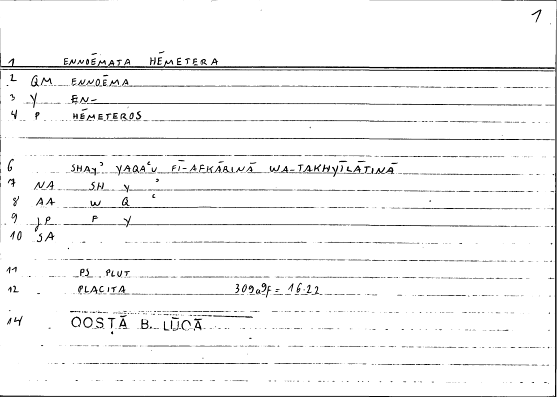 1
1 ENNOĒMATA HĒMETERA
2 QM ENNOĒMA
3 Y EN-
4 P HĒMETEROS
6 SHAYʾ YAQAʿU FĪ-AFKĀRINĀ WA-TAKHYĪLĀTINĀ
7 NA SH Y ʾ
8 AA W Q ʿ
9 JP P Y
10 SA
11 PS PLUT
12 PLACITA 309a9f = 16.22
14 QOSṬĀ B. LŪQĀ